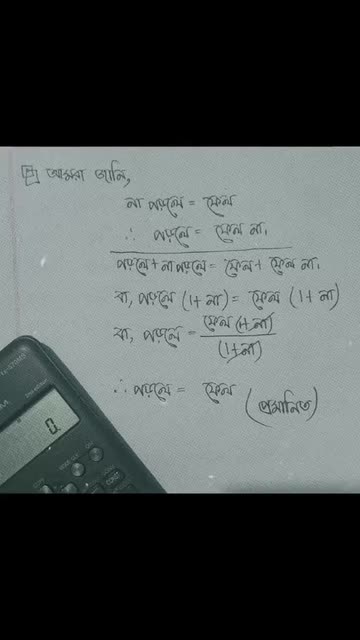 আমরা জানি,
না পড়লে = ফেল
∴ পড়লে = ফেল না।
পড়লে + না পড়লে = ফেল + ফেল না।
বা, পড়লে (1 + না) = ফেল (1 + না)
বা, পড়লে = ফেল (1 + না) / (1 + না)
∴ পড়লে = ফেল (প্রমানিত)
0.